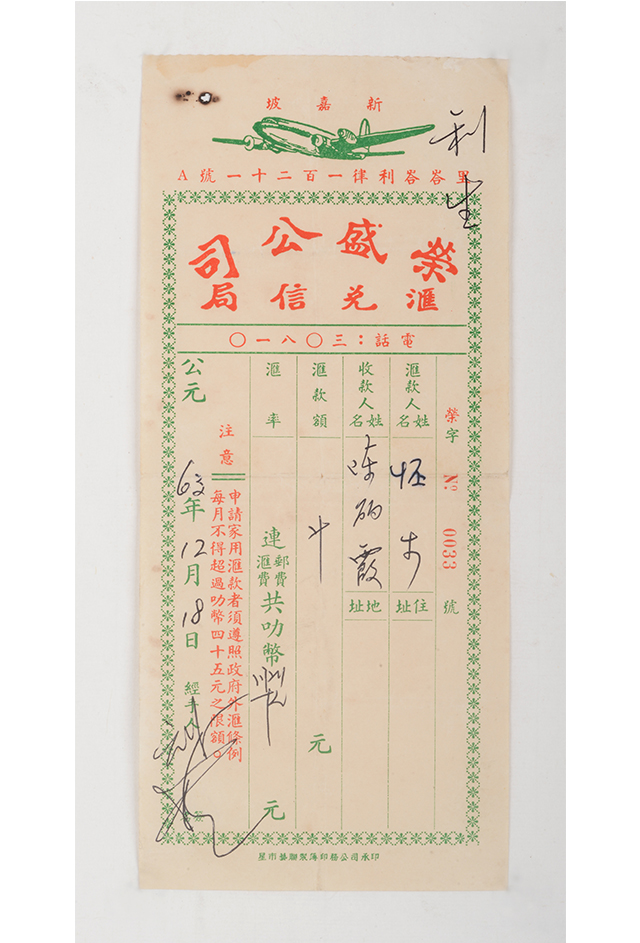 新嘉坡
利生
里峇峇利律一百二十一號A
榮盛公司
滙兌信局
電話：三〇八一〇
榮字 No. 0033 號
滙款人姓名
住址
收款人姓名 陳
霞
地址
滙款額
元
滙率
連郵費滙費共叻幣
元
注意
申請家用滙款者須遵照政府外滙條例
每月不得超過叻幣四十五元之限額。
公元
年12月18日
經手人
星市藝聯製簿印務公司承印